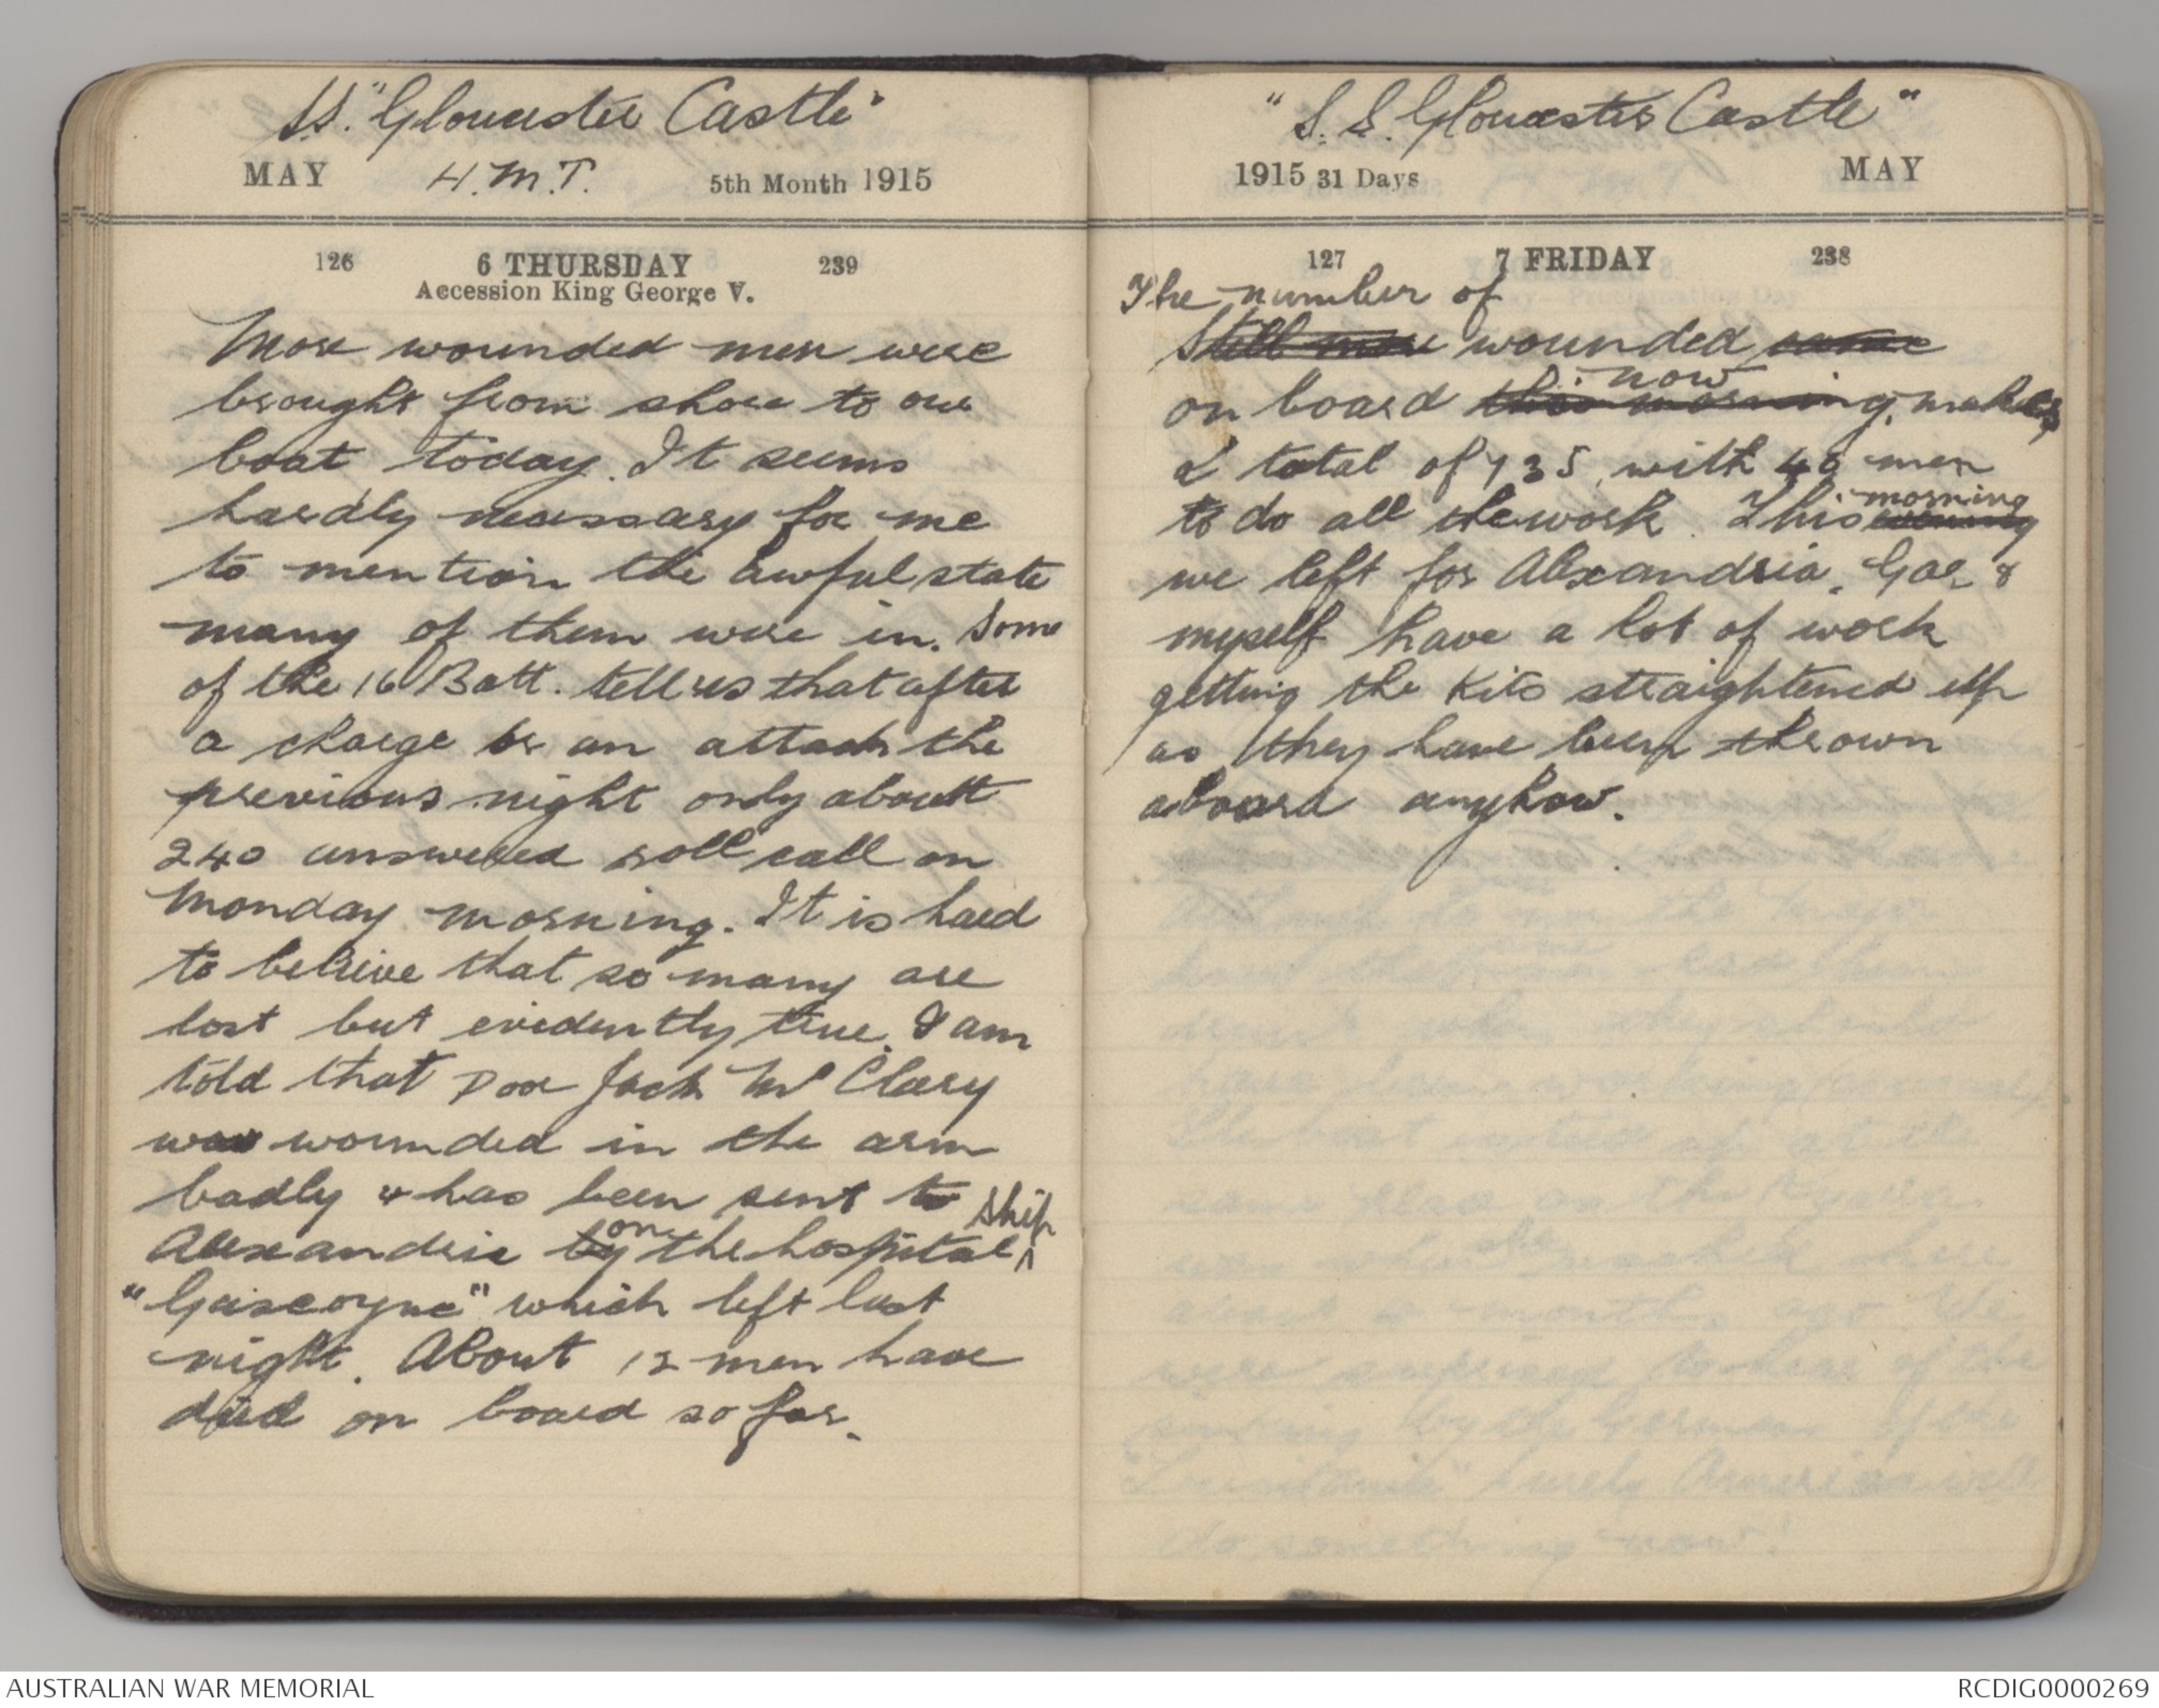 SS. "Gloucester Castle"
MAY H.M.T. 5th Month 1915
126 6 THURSDAY 239
Accession King George V.
More wounded men were
brought from shore to our
boat today. It seems
hardly necessary for me
to mention the awful state
many of them were in. Some
of the 16 Batt. tell us that after
a charge or an attack the
previous night only about
240 answered roll call on
Monday morning. It is hard
to believe that so many are
lost but evidently true. I am
told that poor Jack Mc Clary
was wounded in the arm
badly & has been sent to
Alexandria by on the hospital ship
"Gaiscoyne" which left last
night. About 12 men have
died on board so far.
"S.S. Gloucester Castle"
1915 31 Days MAY
127 7 FRIDAY 238
The number of
Still more wounded came
on board this morning, now makes
a total of 735, with 40 men
to do all the work. This evening morning
we left for Alexandria. &
myself have a lot of work
getting the kits straightened up
as they have been thrown
aboard anyhow.
AUSTRALIAN WAR MEMORIAL
RCDIG0000269